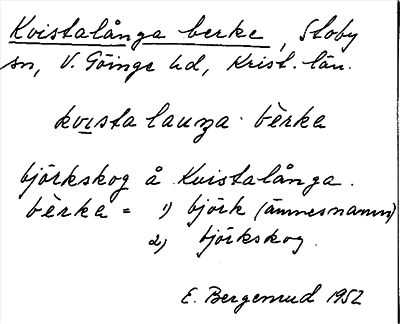 Kvistalånga berke, Stoby
sn, V. Göinge hd, Krist. län.
kvısta lauŋa · bèrka
björkskog å Kvistalånga.
bèrka = 1) björk (ämnesnamn)
2) björkskog.
E. Bergemud 1952